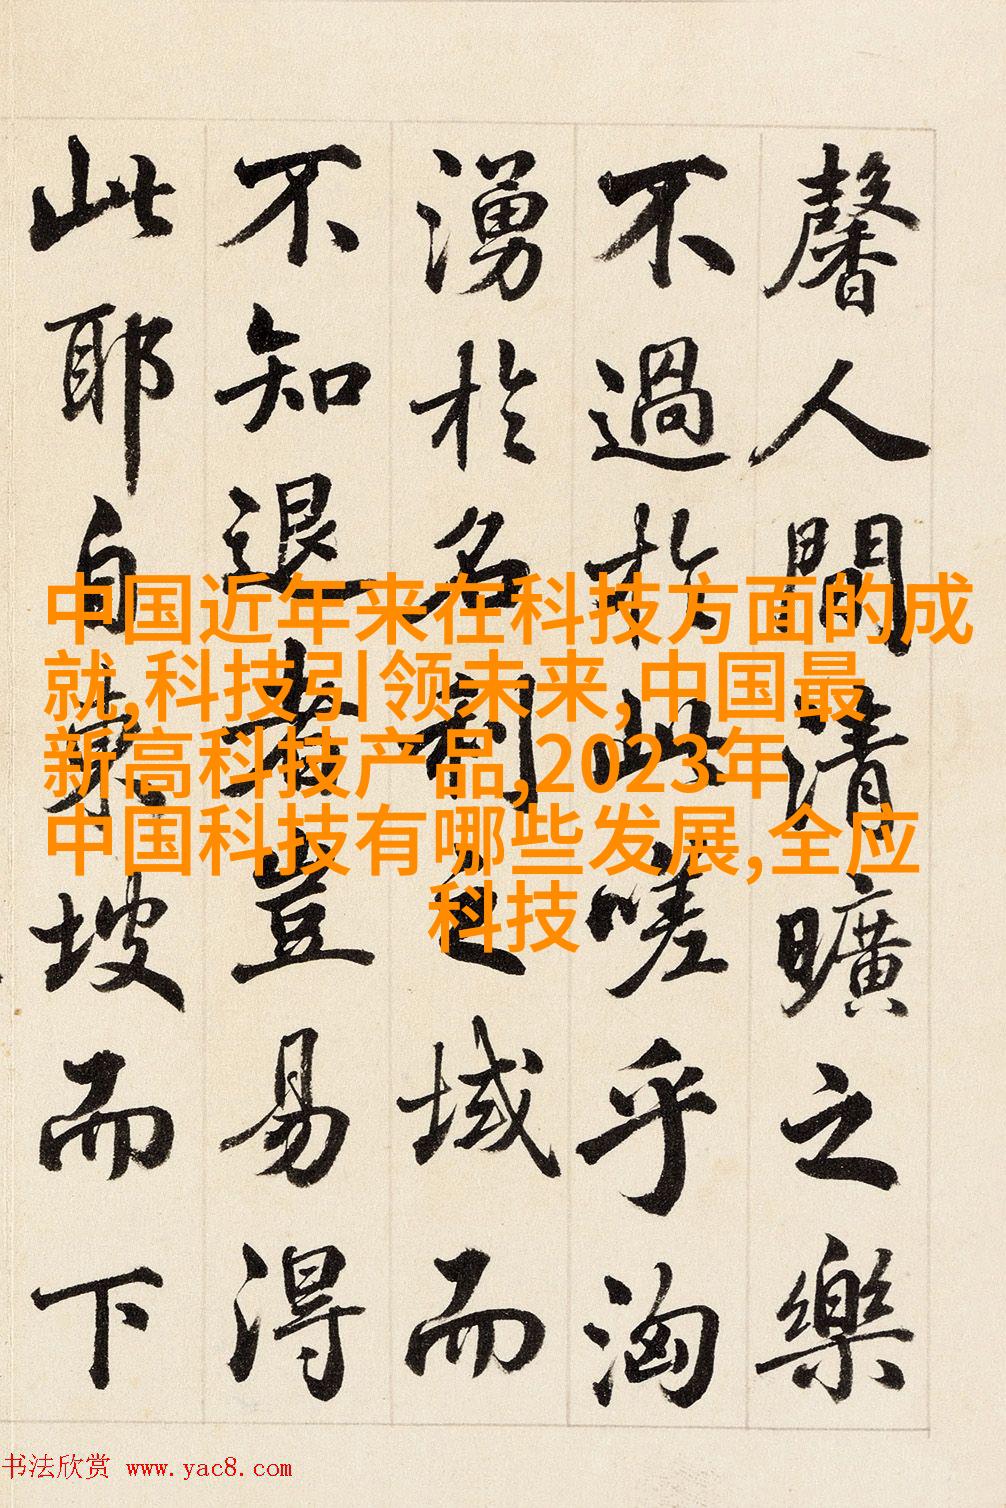 馨人間清曠之樂
不過於此嗟乎洶
湧於名利之域而
不知退者豈易得
此耶自東坡而下
中国近年来在科技方面的成
就,科技引领未来,中国最
新高科技产品,2023年
中国科技有哪些发展,全应
科技
书法欣赏 www.yac8.com